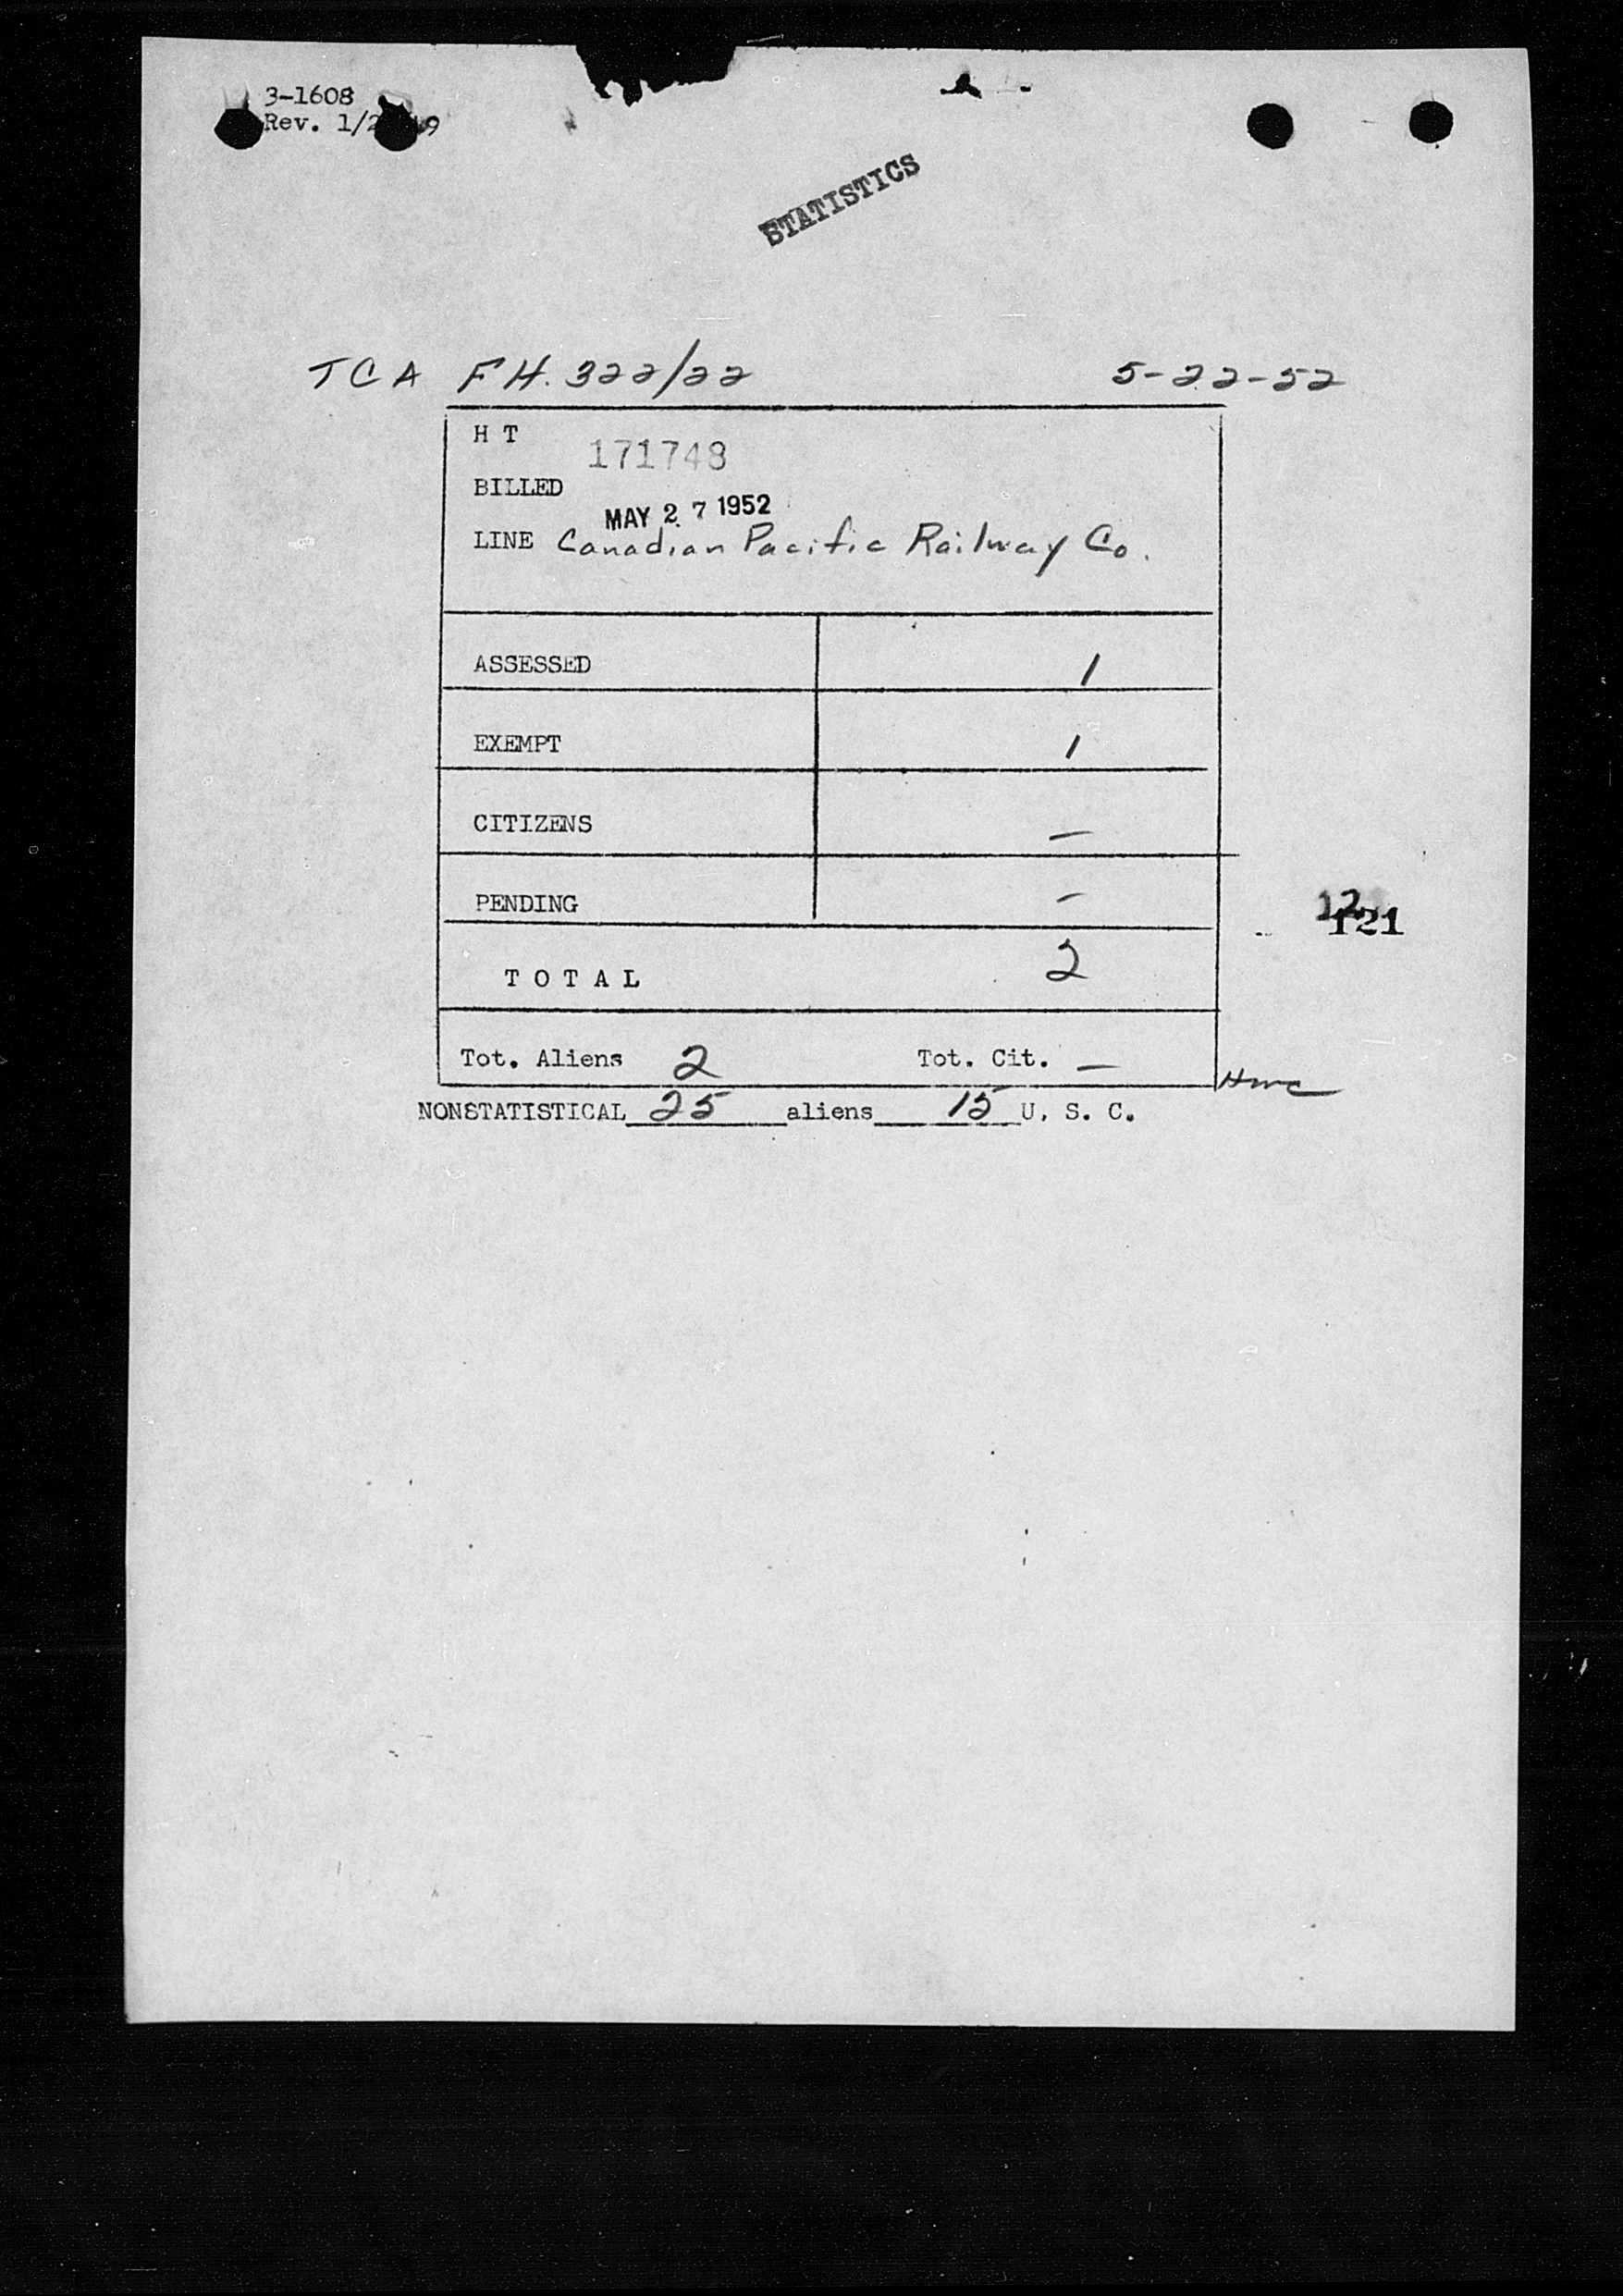 3-1608
Rev. 1/2 49
STATISTICS
TCA FH. 322/22 5-22-52
H T 171748
BILLED
MAY 27 1952
LINE Canadian Pacific Railway Co.
ASSESSED 1
EXEMPT 1
CITIZENS —
PENDING –
121
T O T A L 2
Tot. Aliens 2 Tot. Cit. —
NONSTATISTICAL 25 aliens 15 U. S. C.